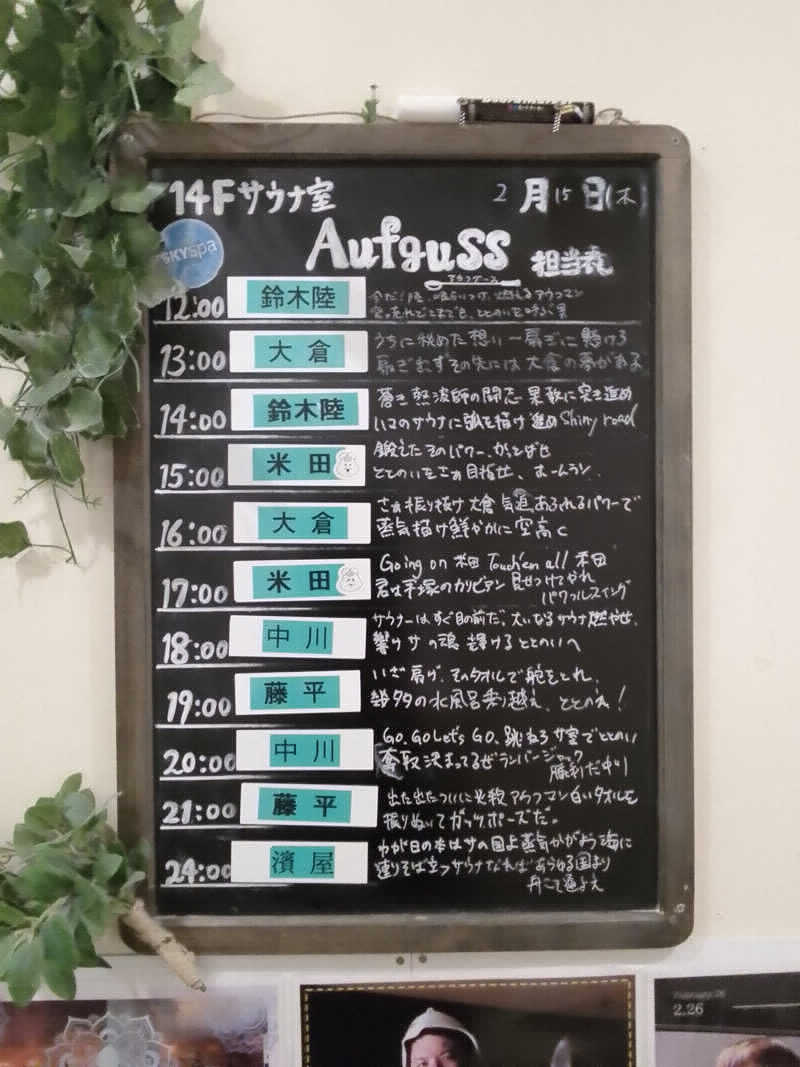 14Fサウナ室
2月15日(木)
SKYSpa
Aufguss
アウフグース
担当表
12:00 鈴木陸
13:00 大倉 うちに秘めた想い一扇ぎに懸けろ
扇ぎむすその先には大倉の夢がある
14:00 鈴木陸 蒼き熱波師の闘志 果敢に突き進め
ハマのサウナに弧を描け 進め Shiny road
15:00 米田 鍛えたそのパワー、かっとばせ
ととのいをさぁ目指せ、ホームラン、
16:00 大倉 さぁ振り抜け 大倉 気迫あふれるパワーで
蒸気描け鮮やかに空高く
17:00 米田 Going on 米田 Touch'em all 米田
君は手塚のカリビアン 見せつけてやれ
パワフルスイング
18:00 中川 サウナーはすぐ目の前だ。大いなるサウナ燃やせ、
響け サの魂 輝けるととのいへ
19:00 藤平 いざ扇げ、そのタオルで舵をとれ、
幾多の水風呂乗り越え、ととのえ!
20:00 中川 GO, GO Let's GO, 跳ねろ サ室でととのい
奪取 決まってるぜランバンジャック
勝利だ中川
21:00 藤平 出た出たついに必殺アウフマン 白いタオルを
振りぬいてガッツポーズだ。
24:00 濱屋 わが日の本はサの国よ 蒸気かがよう海に
連りそば立つサウナなれば あらゆる国より
舟こそ通よえ
February 26
2.26